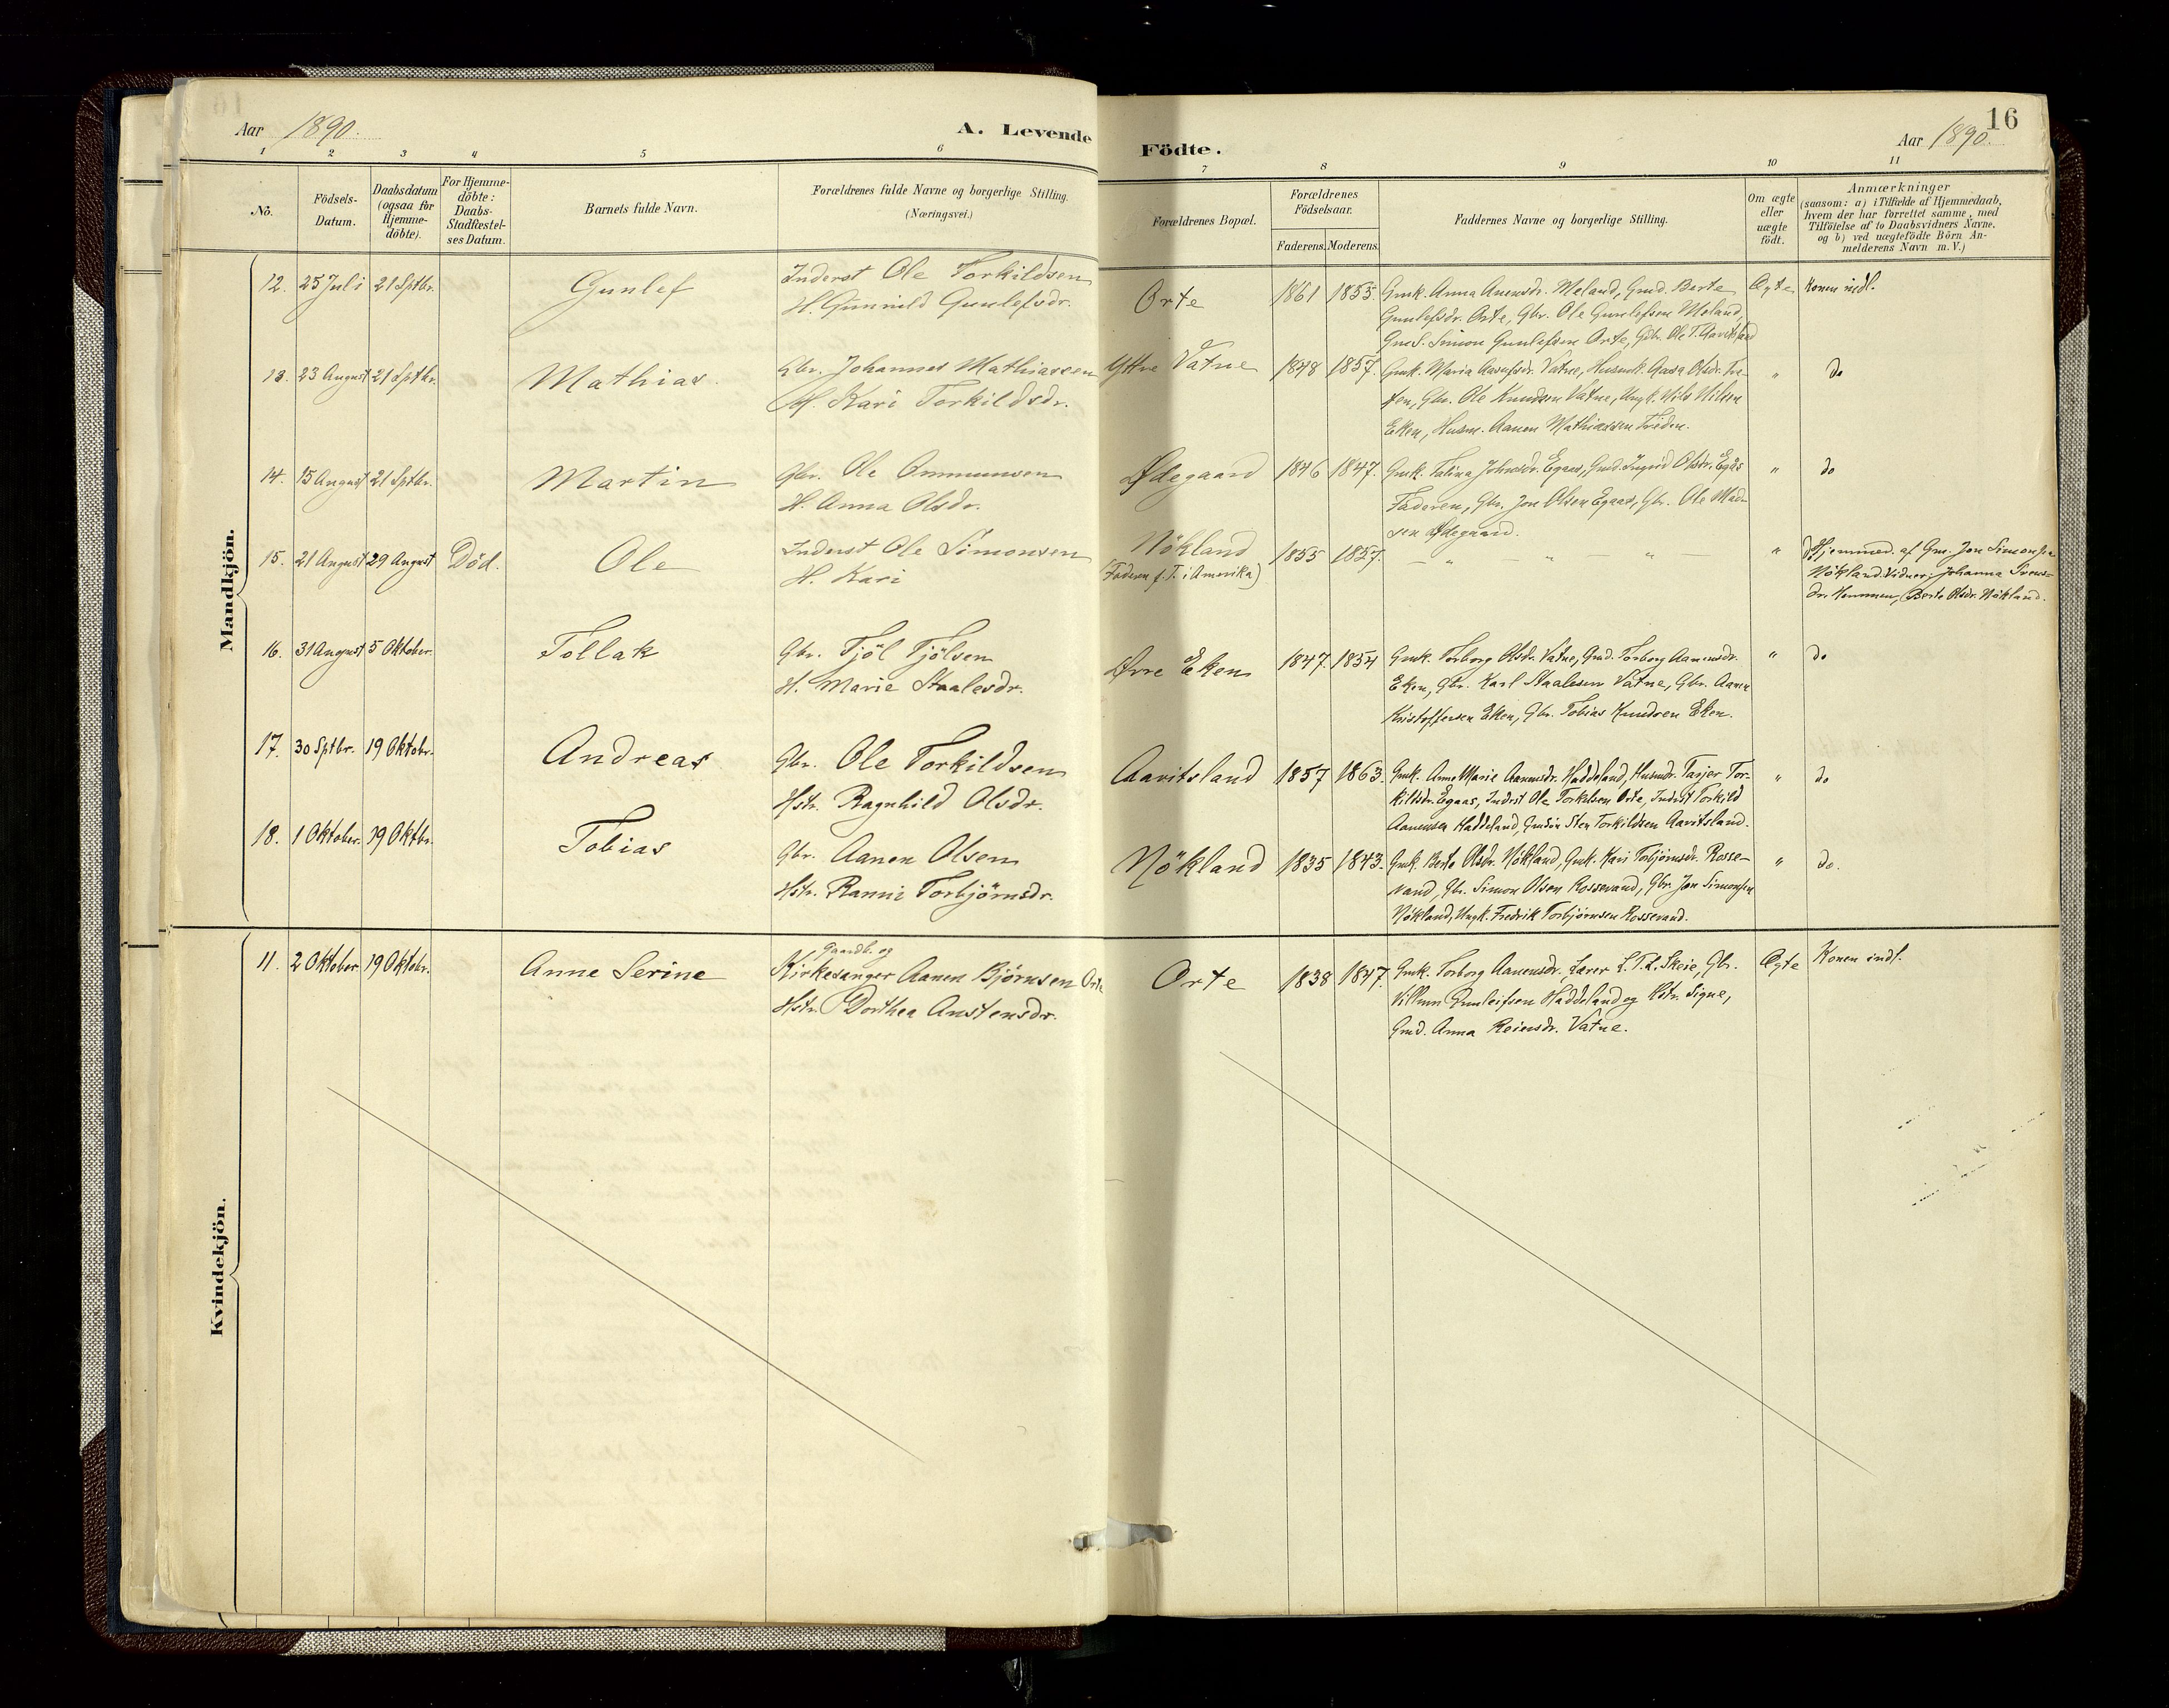 16
Aar 1890.
A. Levende
Födte.
Aar 1890.
1 2 3 4 5 6 7 8 9 10 11
No.
Födsels-
Datum.
Daabsdatum
(ogsaa for
Hjemme-
döbte).
For Hjemme-
döbte:
Daabs-
Stadfæstel-
ses Datum.
Barnets fulde Navn.
Forældrenes fulde Navne og borgerlige Stilling.
(Næringsvei.)
Forældrenes Bopæl.
Forældrenes
Födselsaar.
Faderens. Moderens.
Faddernes Navne og borgerlige Stilling.
Om ægte
eller
uægte
födt.
Anmærkninger
(saasom: a) i Tilfælde af Hjemmedaab,
hvem der har forrettet samme, med
Tilföielse af to Daabsvidners Navne.
og b) ved uægtefödte Börn An-
melderens Navn m. V.)
Mandkjön.
12. 25 Juli 21 Sptbr. Gunlef
Inderst Ole Torkildsen
H. Gunnild Gunlefsdr.
Orte 1861 1855.
Gmk. Anna Anensdr. Meland, Gmd. Berte
Gunlefsdr. Orte, Gbr. Ole Gunlefsen Meland,
GmS. Simon Gunlefsen Orte, Gbr. Ole T. Aavitsland
Ægte Konen indl.
13. 23 August 21 Sptbr. Mathias.
Gbr. Johannes Mathiassen
H. Kari Torkildsdr.
Yttre Vatne 1848 1857.
Gmk. Maria Vatne, Husmk. Aasa Olsdr. Tve-
ten, Gbr. Ole Knudsen Vatne, Ungk. Nils Nilsen
Eken, Husm. Aanen Mathiassen
" do
14. 15 August 21 Sptbr. Martin
Gbr. Ole Ommunsen
H. Anna Olsdr.
Ødegaard 1846 1847.
Gmk. Talina Johnsdr. Egaas, Gmd. Ingrid Olsdr. Egås
Faderen, Gbr. Jon Olsen Egaas, Gbr. Ole Mad-
sen Ødegaard.
" do
15. 21 August 29 August Död. Ole
Inderst Ole Simonsen
H. Kari
Nökland
(Faderen f. T. i Amerika)
1855 1857.
— " — " — " —
" do Hjemmed. af Gm. Jon Simonsen
Nökland. Vidner: Johanna Svens-
dr. Hemmen, Berte Olsdr. Nökland.
16. 31 August 5 Oktober. Tollak
Gbr. Tjöl Tjölsen
H. Marie Staalesdr.
Øvre Eken 1847. 1854
Gmk. Torborg Olsdr. Vatne, Gmd. Torborg Aanensdr.
Eken, Gbr. Karl Staalesen Vatne, Gbr. Aanen
Kristoffersen Eken, Gbr. Tobias Knudsen Eken.
" do
17. 30 Sptbr. 19 Oktobr. Andreas
Gbr. Ole Torkildsen
Hstr. Ragnhild Olsdr.
Aavitsland 1857 1863.
Gmk. Anne Marie Aanensdr. Haddeland, Husmdr. Tarjer Tor-
kildsdr. Egaas, Inderst Ole Torkelsen Orte, Inderst Torkild
Aanensen Haddeland, Gmdsn Sten Torkildsen Aavitsland.
" do
18. 1 Oktober. 19 Oktbr. Tobias
Gbr. Aanen Olsen
Hstr. Ranni Torbjörnsdr.
Nökland 1835 1843.
Gmk. Berte Olsdr. Nökland, Gmk. Kari Torbjörnsdr. Rosse-
vand, Gbr. Simon Olsen Rossevand, Gbr. Jon Simonsen
Nökland, Ungk. Fredrik Torbjörnsen Rossevand.
" do.
Kvindekjön.
11. 2 Oktober 19 Oktobr. Anne Serine
Gaardb. og
Kirkesanger Aanen Björnsen Orte
Hstr. Dorthea Anstensdr.
Orte 1838 1847.
Gmk. Torborg Aanensdr., Lærer L. T. L. Skeie, Gbr.
Villum Gunleifsen Haddeland og Hstr. Signe,
Gmd. Anna Reiersdr. Vatne.
Ægte Konen indl.